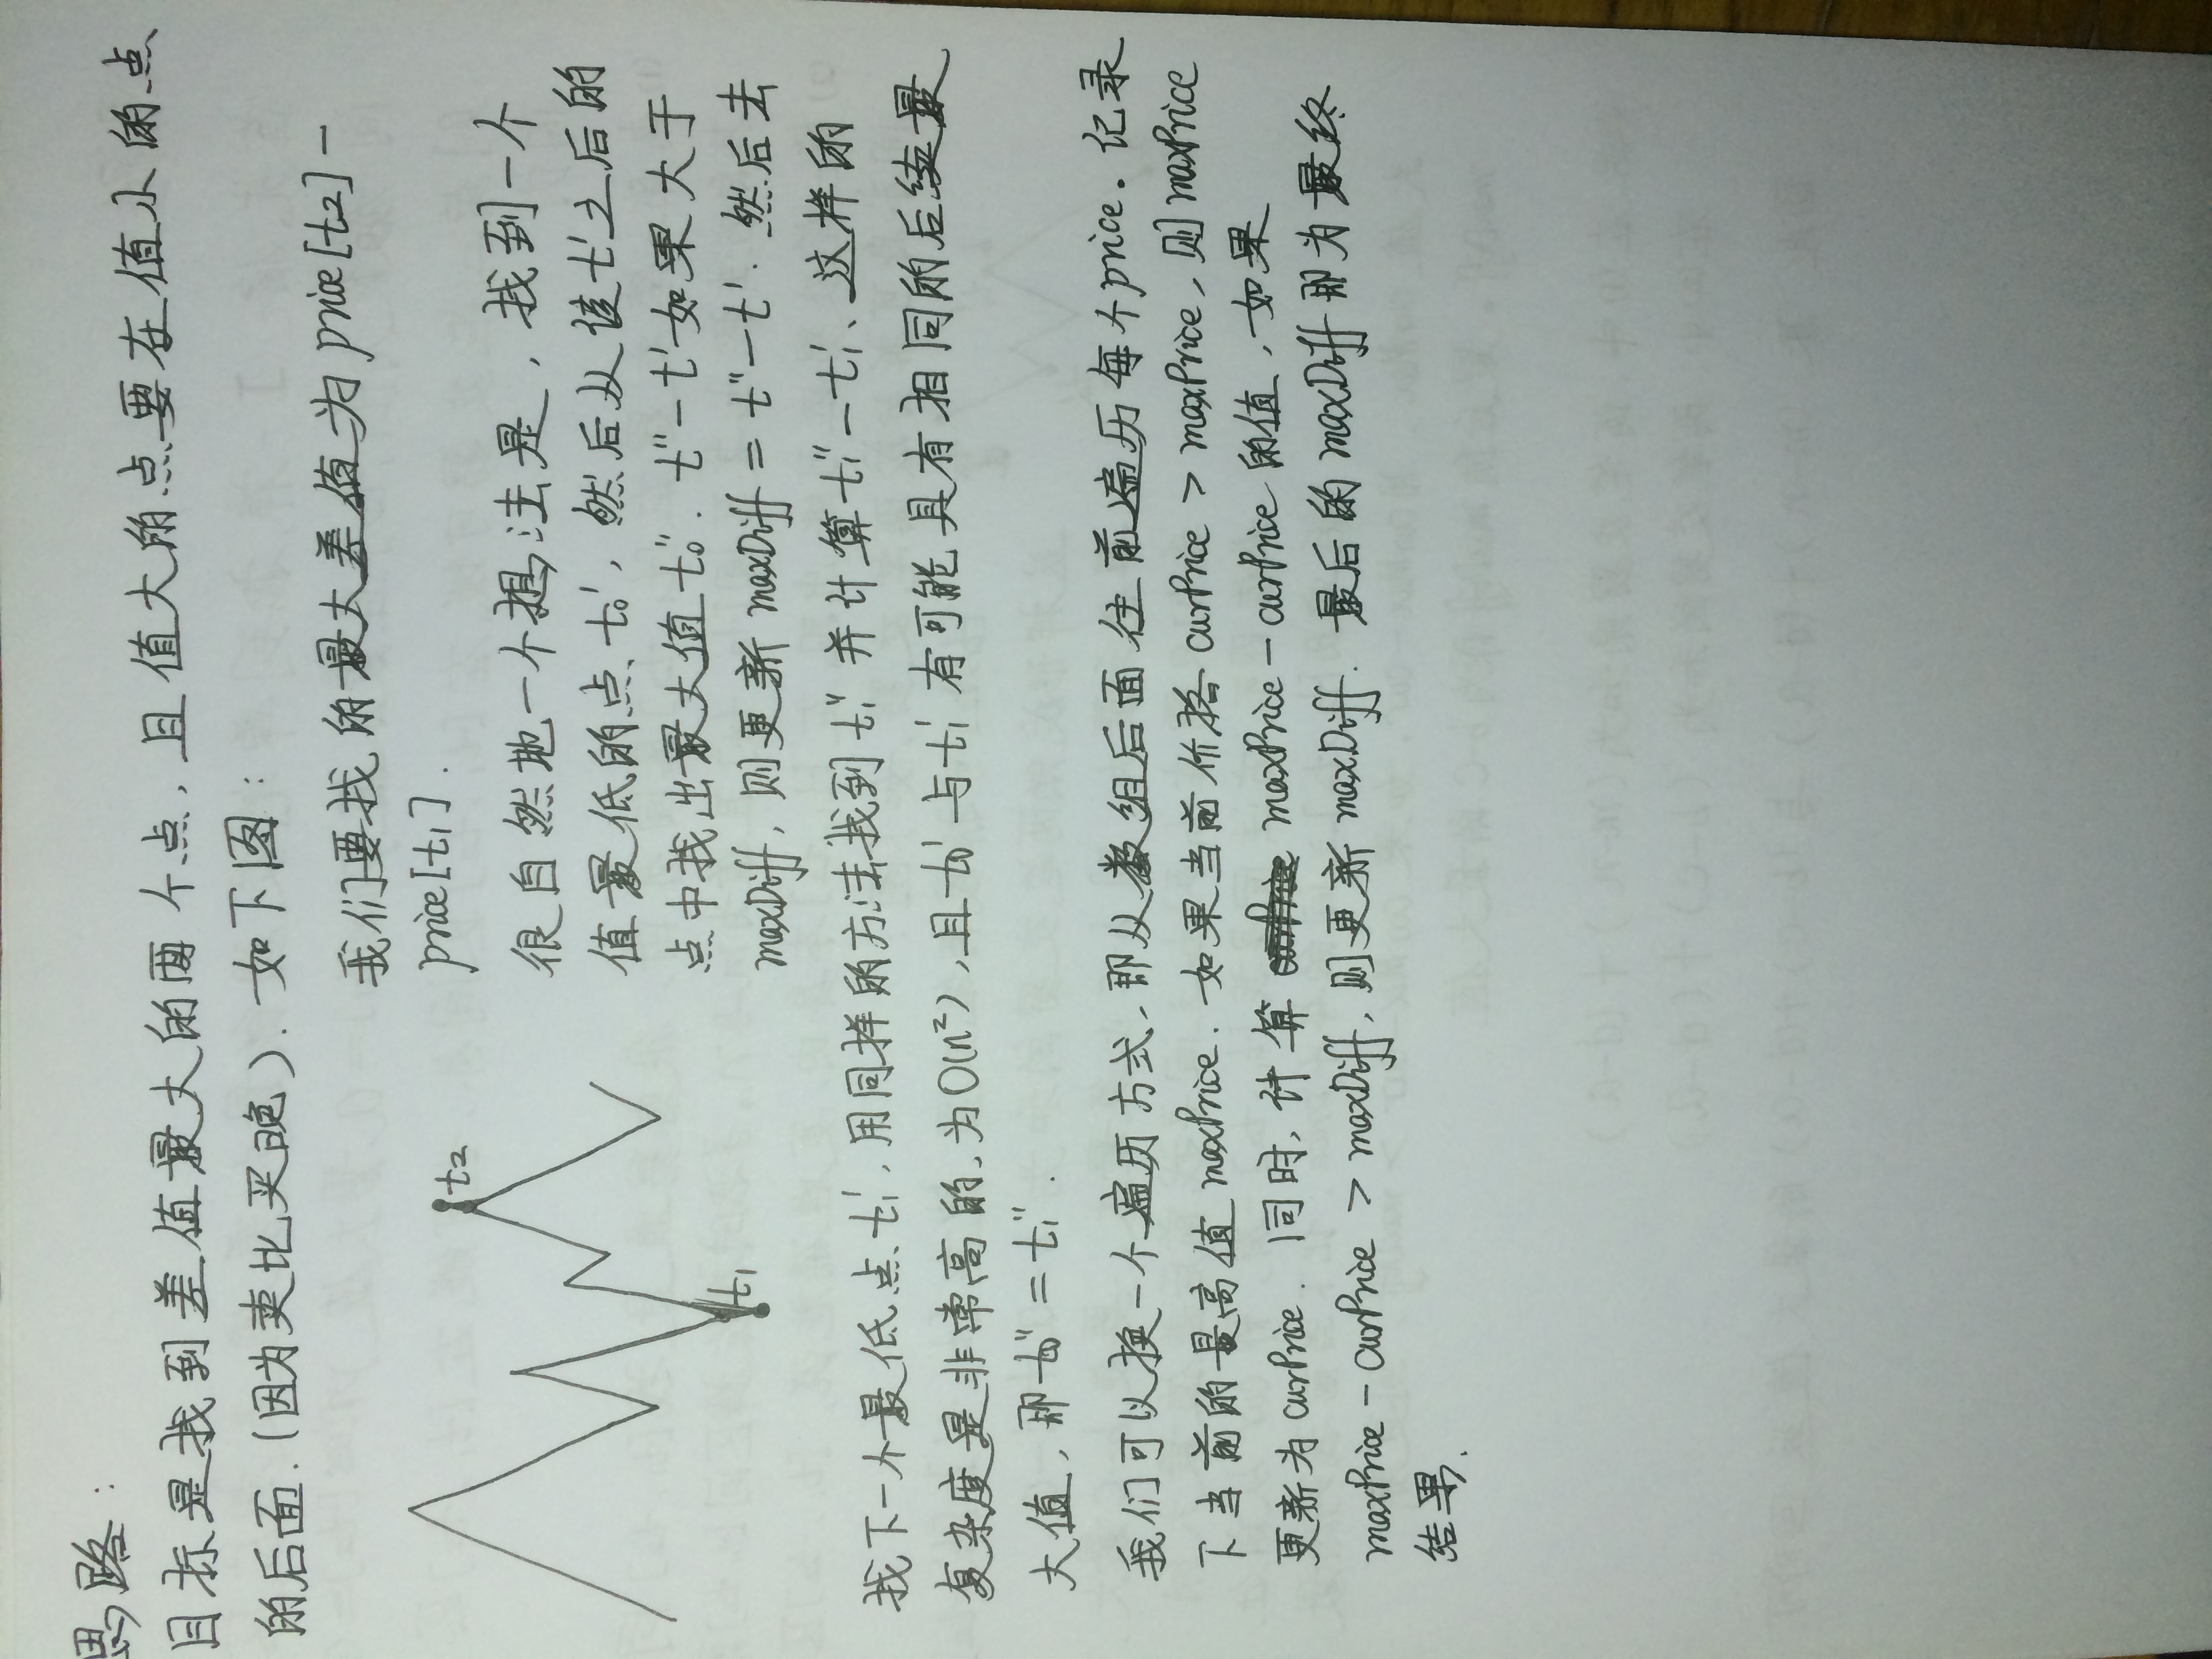 思路:
目标是找到差值最大的两个点,且值大的点要在值小的点
的后面.(因为卖比买晚). 如下图:
我们要找的最大差值为price[t2]-
price[t1].
t2
t1
很自然地一个想法是,找到一个
值最低的点t0',然后从该t'之后的
点中找出最大值t0''. t''-t'如果大于
maxDiff,则更新maxDiff = t''-t'. 然后去
找下一个最低点t1',用同样的方法找到t1''并计算t1''-t1'、这样的
复杂度是非常高的,为O(n²),且t0'与t1'有可能具有相同的后续最
大值,即t0''=t1''.
我们可以换一个遍历方式,即从数组后面往前遍历每个price. 记录
下当前的最高值maxPrice. 如果当前价格curPrice > maxPrice,则maxPrice
更新为curPrice. 同时,计算 maxPrice-curPrice的值,如果
maxPrice-curPrice > maxDiff,则更新maxDiff. 最后的maxDiff即为最终
结果.